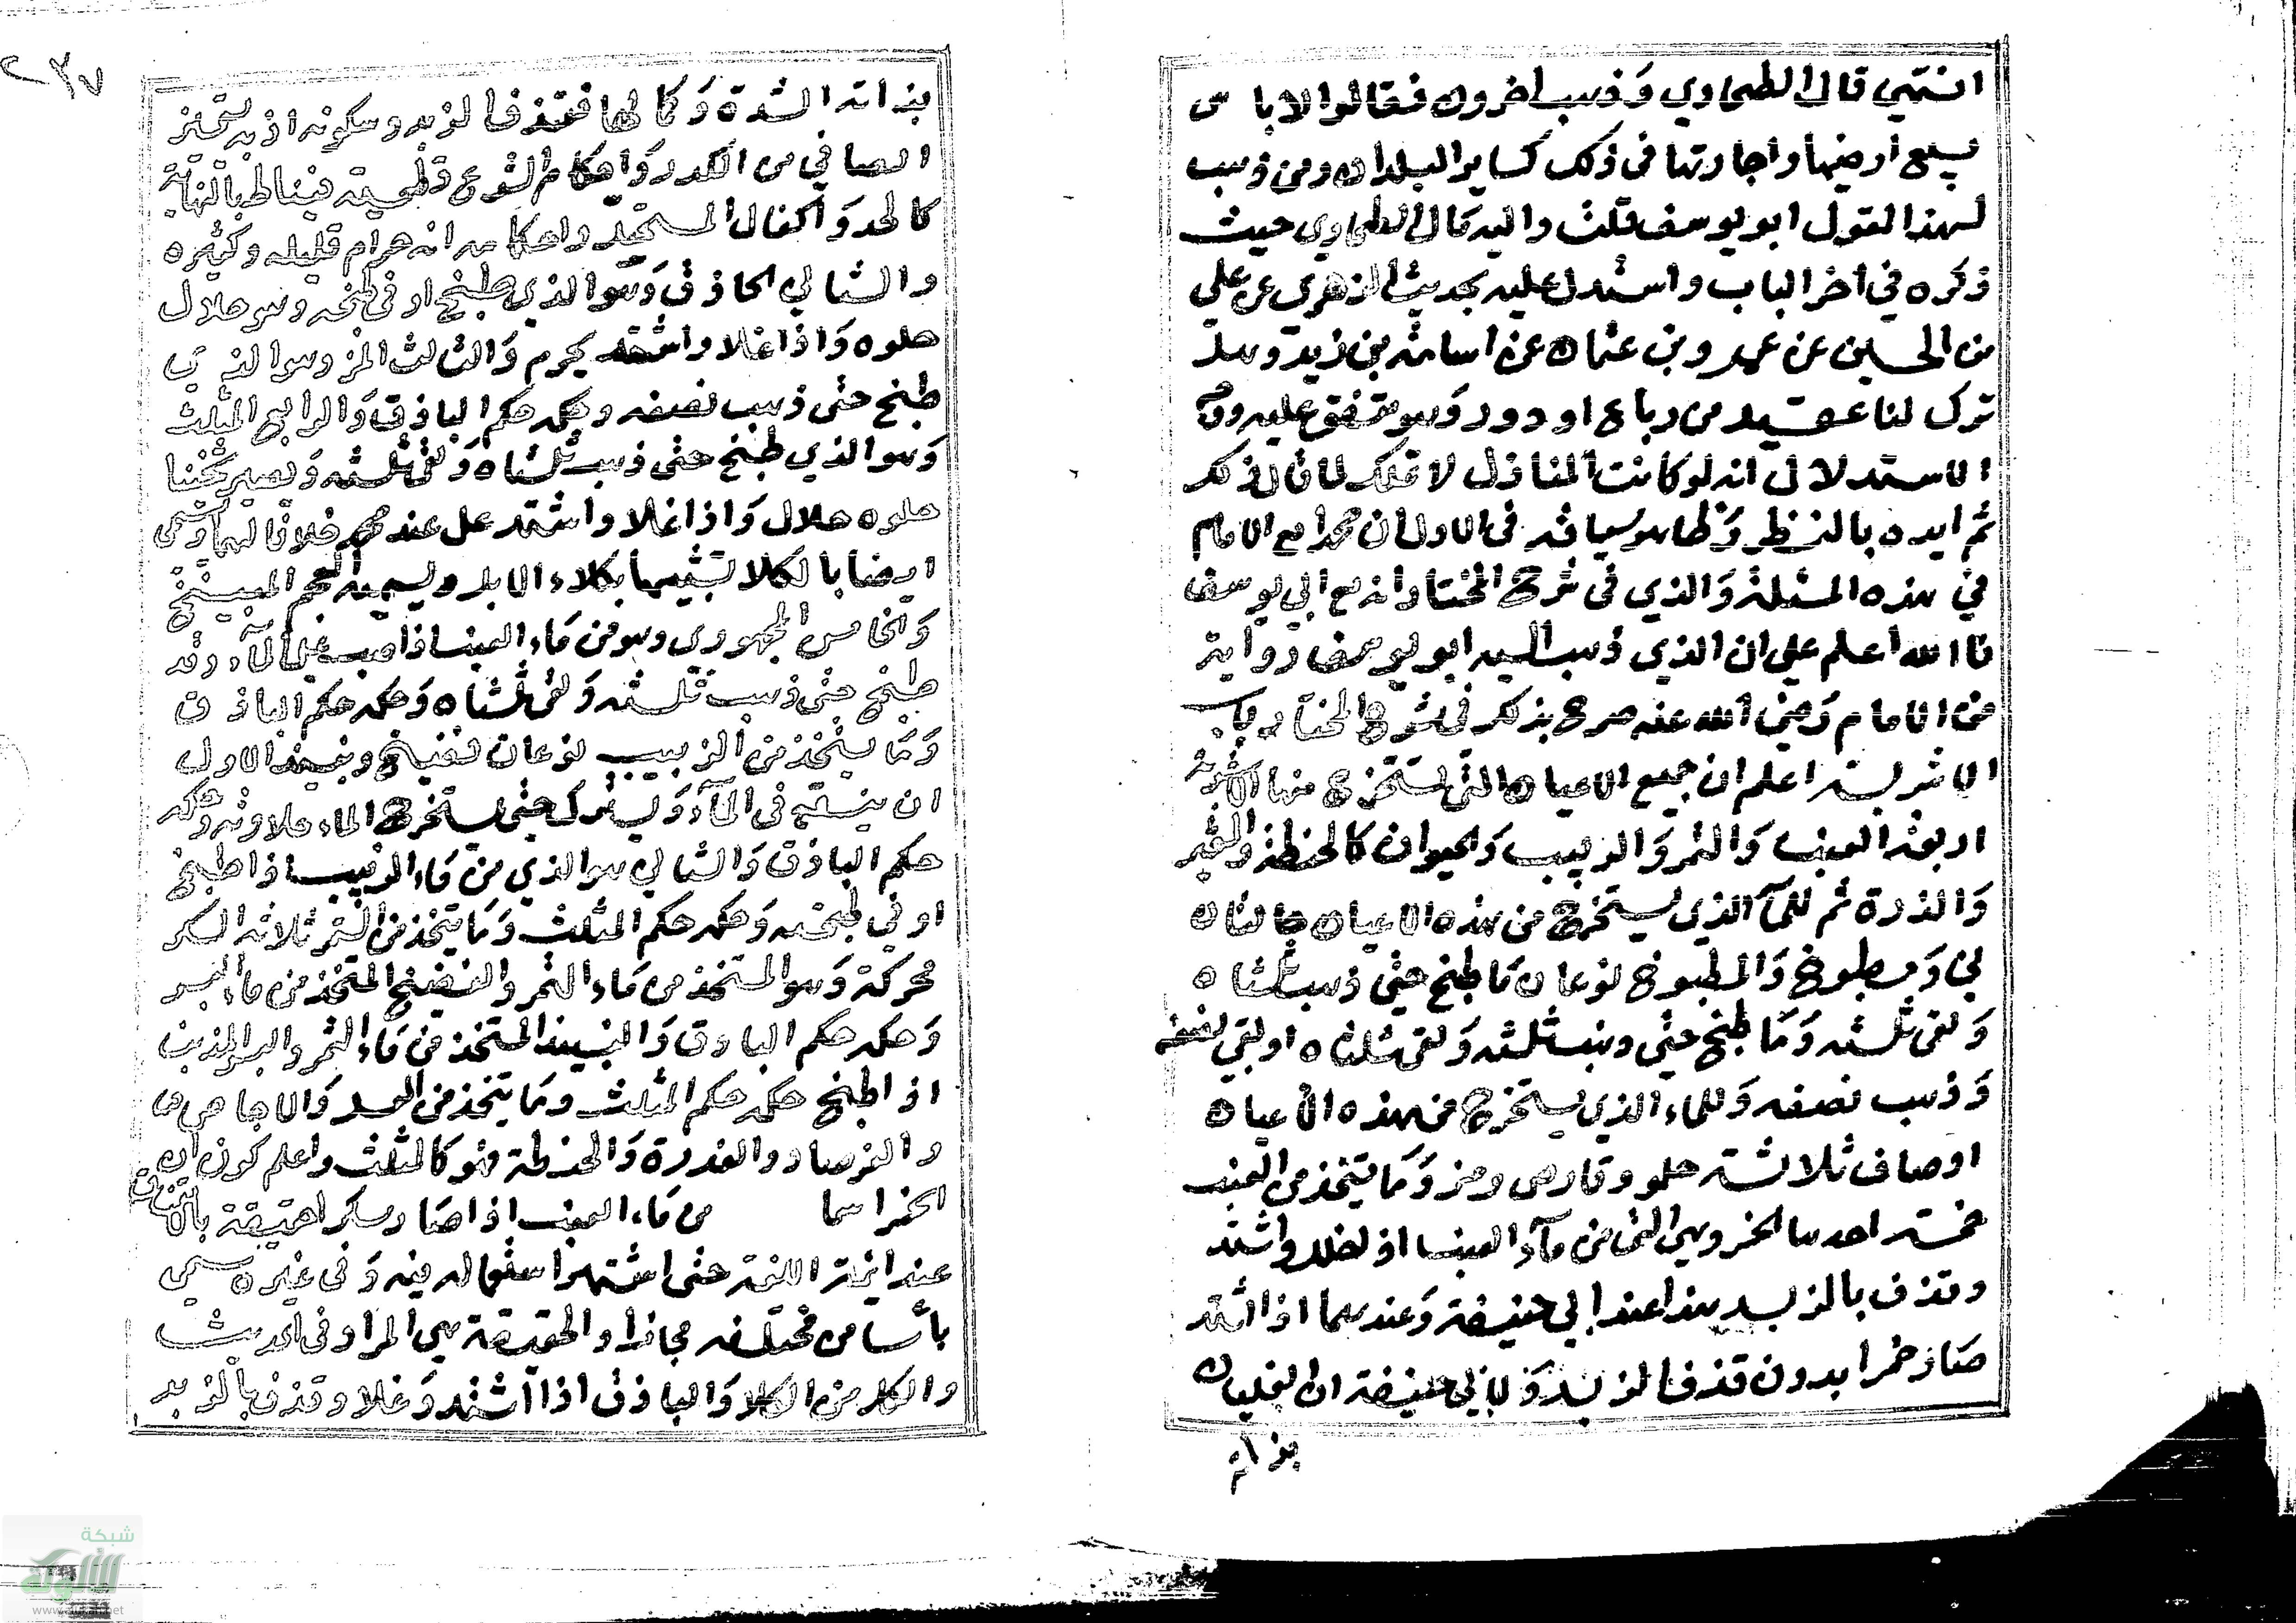 انتهي قال الطحاوي وذهب اخرون فقالوا لا باس
ببيع ارضها واجارتها في ذلك كساير البلدان وممن ذهب
لهذا القول ابو يوسف قلت واليه مال الطحاوي حيث
ذكره في اخر الباب واستدل عليه بحديث الزهري عن علي
بن الحسين عن عمرو بن عثمان عن اسامة بن زيد وهل
ترك لنا عقيل من رباع او دور وهو متفق عليه
الاستدلال انه لو كانت المنازل لا تملك لما قال ذلك
ثم ايده بالنظر وظاهر سياقه في الاول ان محمدا مع الامام
في هذه المسئلة والذي في شرح المختار انه مع ابي يوسف
فالله اعلم علي ان الذي ذهب اليه ابو يوسف رواية
عن الامام رضي الله عنه صرح بذلك في شرح المختار باب
الاشربة اعلم ان جميع الاعيان التي تستخرج منها الاشربة
اربعة العنب والتمر والزبيب والحبوان كالحنطة والشعير
والذرة ثم للمآ الذي يستخرج من هذه الاعيان حالتان
ني ومطبوخ والمطبوخ نوعان ما طبخ حتى ذهب ثلثاه
وبقى ثلثه وما طبخ حتى ذهب ثلثه وبقى ثلثاه او بقي نصفه
وذهب نصفه وللماء الذي يستخرج من هذه الاعيان
اوصاف ثلاثة حلو وقارص ومز وما يتخذ من العنب
خمسة احدها الخمر وهي التى من مآء العنب اذ اغلا واشتد
وقذف بالزبد هذا عند ابي حنيفة وعندهما اذا اشتد
صار خمرا بدون قذف الزبد ولابي حنيفة ان الغليان
بذاته
٢٣٧
بذاته الشدة وكمالها فقذف الزبد وسكونه اذ به يتميز
الصافي من الكدر واحكام الشرع قطعية فيناط بالنهاية
كالحد واكفار المستحل واحكامه انه حرام قليله وكثيره
والثاني الباذق وهو الذي طبخ ادنى طبخه وهو حلال
حلوه واذا غلا واشتد يحرم والثالث المز وهو الذي
طبخ حتى ذهب نصفه وحكمه حكم الباذق والرابع المثلث
وهو الذي طبخ حتى ذهب ثلثاه وبقى ثلثه ويصير ثخينا
حلوه حلال واذا غلا واشتد حل عند محمد خلافا لهما وسمى
ايضا بالكلا تشبيها بكلاء الابل ويسميه العجم
والخامس الجهوري وهو من ماء العنب اذا صب عليه المآء وقد
طبخ حتى ذهب ثلثه وبقى ثلثاه وحكمه حكم الباذق
وما يتخذ من الزبيب نوعان نقيع ونبيذ الاول
ان ينقع في المآء ويترك حتى يستخرج الماء حلاوته وحكمه
حكم الباذق والثاني هو الذي من ماء الزبيب اذا طبخ
ادنى طبخه وحكمه حكم المثلث وما يتخذ من التمر ثلاثة السكر
محركة وهو المتخذ من ماء التمر والفضيخ المتخذ من ماء البسر
وحكمه حكم الباذق والنبيذ المتخذ من ماء التمر والبسر المذنب
اذا طبخ حكمه حكم المثلث وما يتخذ من العسل والاجاص
والفرصاد والذرة والحنطة فهو كالمثلث واعلم كون ان
الخمر اسما من ماء العنب اذا صار سكرا حقيقة بالاتفاق
عند ائمة اللغة حتى اشتهر استعماله فيه وفي غيره سمي
باسامي مختلفه مجازا والحقيقة هي المراد في الحديث
والكل من الكلا والباذق اذا اشتد وغلا وقذف بالزبد
شبكة
الألوكة